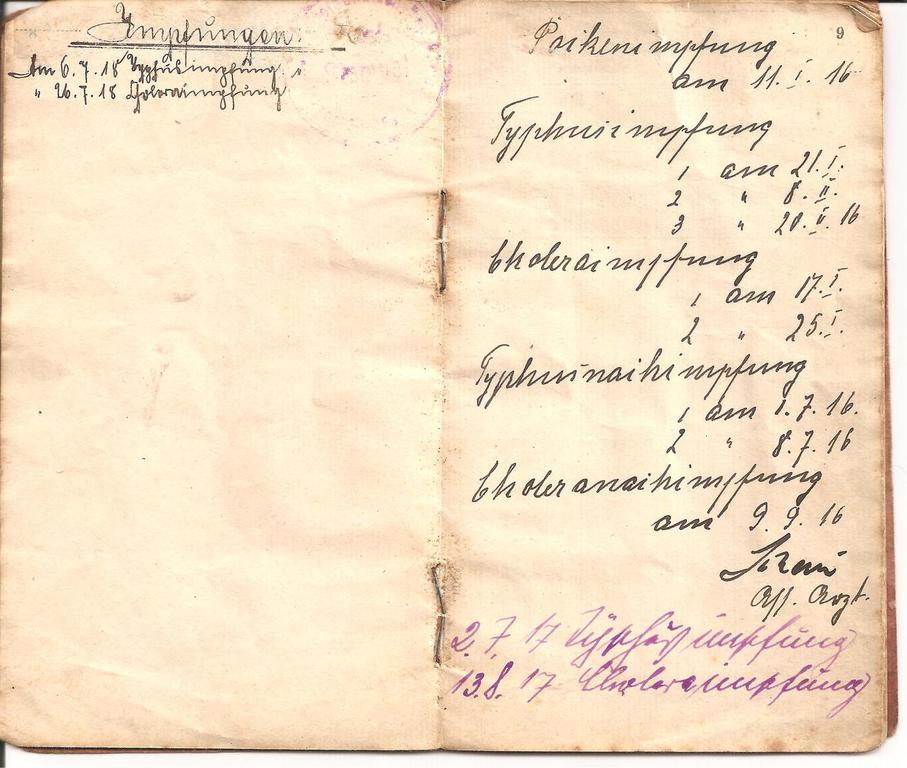 Impfungen:
Am 6.7.18 Typhusimpfung
" 26.7.18 Choleraimpfung
9
Pockenimpfung
am 11. I. 16
Typhusimpfung
1 am 21. I.
2 " 8. II.
3 " 20. II. 16
Choleraimpfung
1 am 17. I.
2 " 25. I.
Typhusnachimpfung
1 am 1. 7. 16.
2 " 8. 7. 16
Choleranachimpfung
am 9. 9. 16
Ass. Arzt.
2. 7. 17 Typhusimpfung
13.8. 17 Choleraimpfung